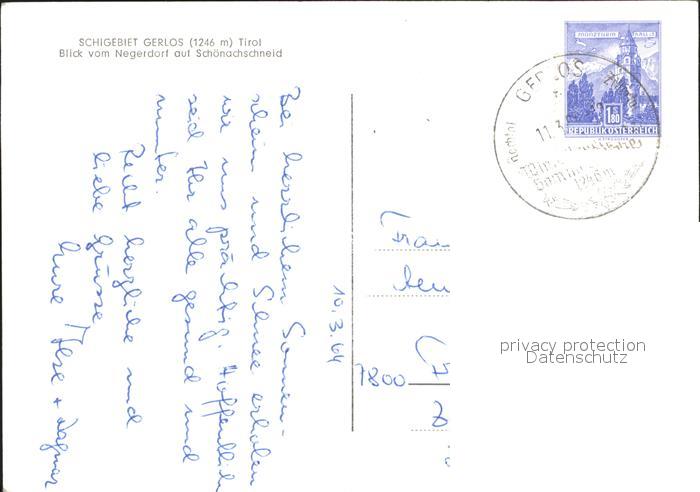 SCHIGEBIET GERLOS (1246 m) Tirol
Blick vom Negerdorf auf Schönachschneid
Bei herrlichem Sonnen-
schein und Schnee erholen
wir uns prächtig. Hoffentlich
seid Ihr alle gesund und
munter.
Recht herzliche und
liebe Grüsse
Eure Ilse + Dagmar
10.3.64
Frau
7800
MÜNZTURM HALL
1.80
REPUBLIK ÖSTERREICH
GERLOS
11.3
1246m
privacy protection
Datenschutz